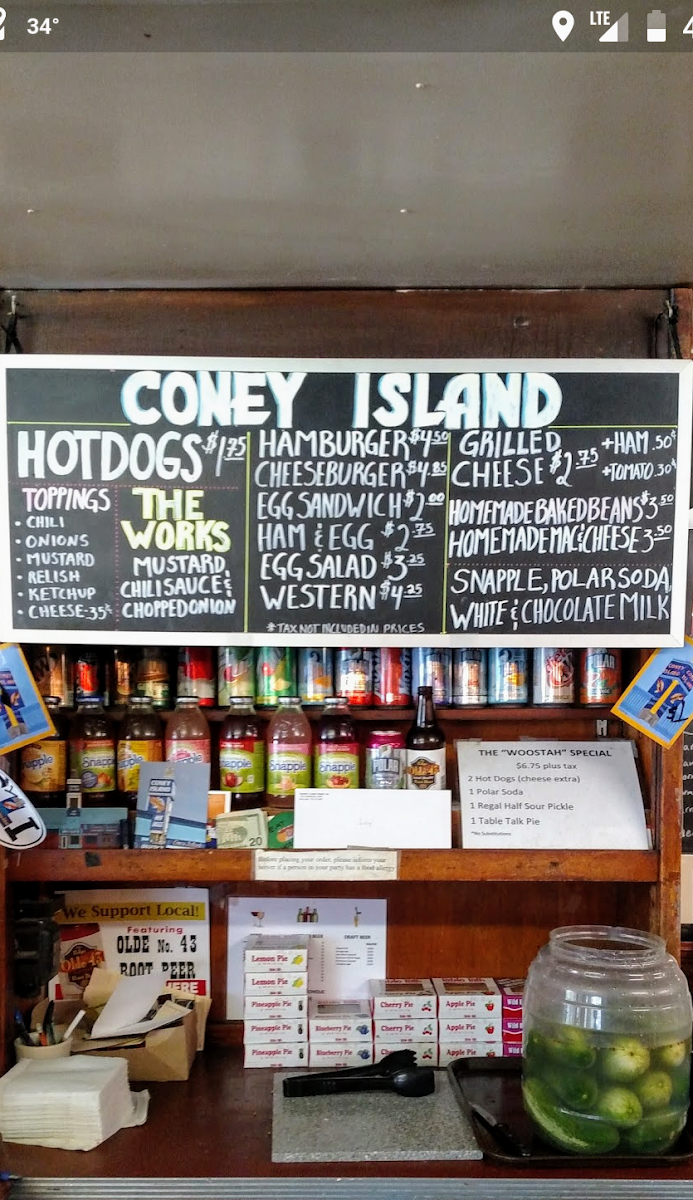 34°
LTE
4
CONEY ISLAND
HOTDOGS $1.75
TOPPINGS
• CHILI
• ONIONS
• MUSTARD
• RELISH
• KETCHUP
• CHEESE-35¢
THE
WORKS
MUSTARD,
CHILI SAUCE &
CHOPPED ONION
HAMBURGER $4.50
CHEESEBURGER $4.85
EGG SANDWICH $2.00
HAM & EGG $2.75
EGG SALAD $3.25
WESTERN $4.25
*TAX NOT INCLUDED IN PRICES
GRILLED
CHEESE $2.75
+HAM .50¢
+TOMATO .30¢
HOMEMADE BAKED BEANS $3.50
HOMEMADE MAC & CHEESE 3.50
SNAPPLE, POLAR SODA,
WHITE & CHOCOLATE MILK
Snapple
Snapple
Snapple
Snapple
Snapple
Snapple
POLAR
THE "WOOSTAH" SPECIAL
$6.75 plus tax
2 Hot Dogs (cheese extra)
1 Polar Soda
1 Regal Half Sour Pickle
1 Table Talk Pie
*No Substitutions
CONEY
ISLAND
20
Before placing your order, please inform your
server if a person in your party has a food allergy
We Support Local!
Featuring
OLDE No. 43
ROOT BEER
HERE
DRAFT BEER
Lemon Pie
Lemon Pie
Pineapple Pie
Pineapple Pie
Pineapple Pie
Blueberry Pie
Blueberry Pie
Cherry Pie
Cherry Pie
Cherry Pie
Apple Pie
Apple Pie
Apple Pie